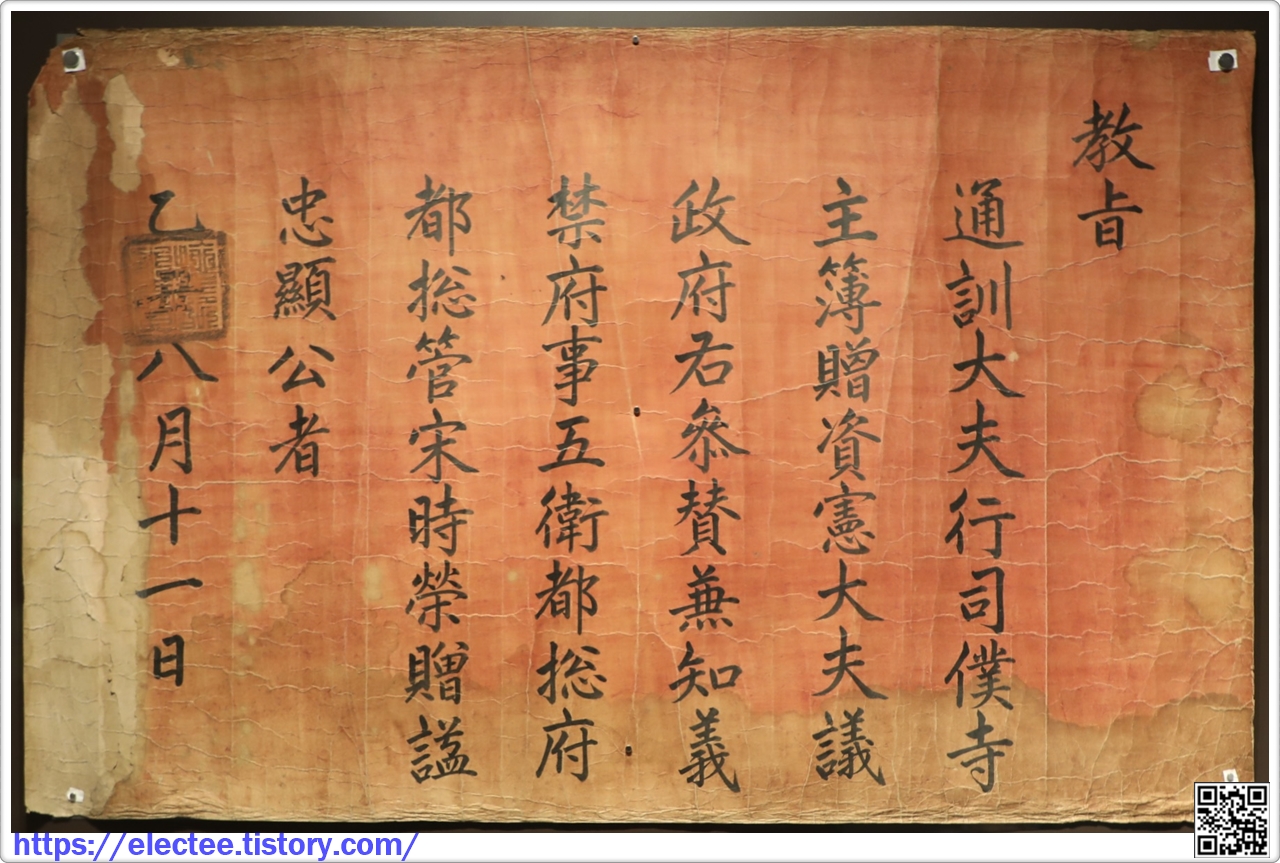 教旨
通訓大夫行司僕寺
主簿贈資憲大夫議
政府右參贊兼知義
禁府事五衛都摠府
都摠管宋時榮贈諡
忠顯公者
乙 八月十一日
https://electee.tistory.com/